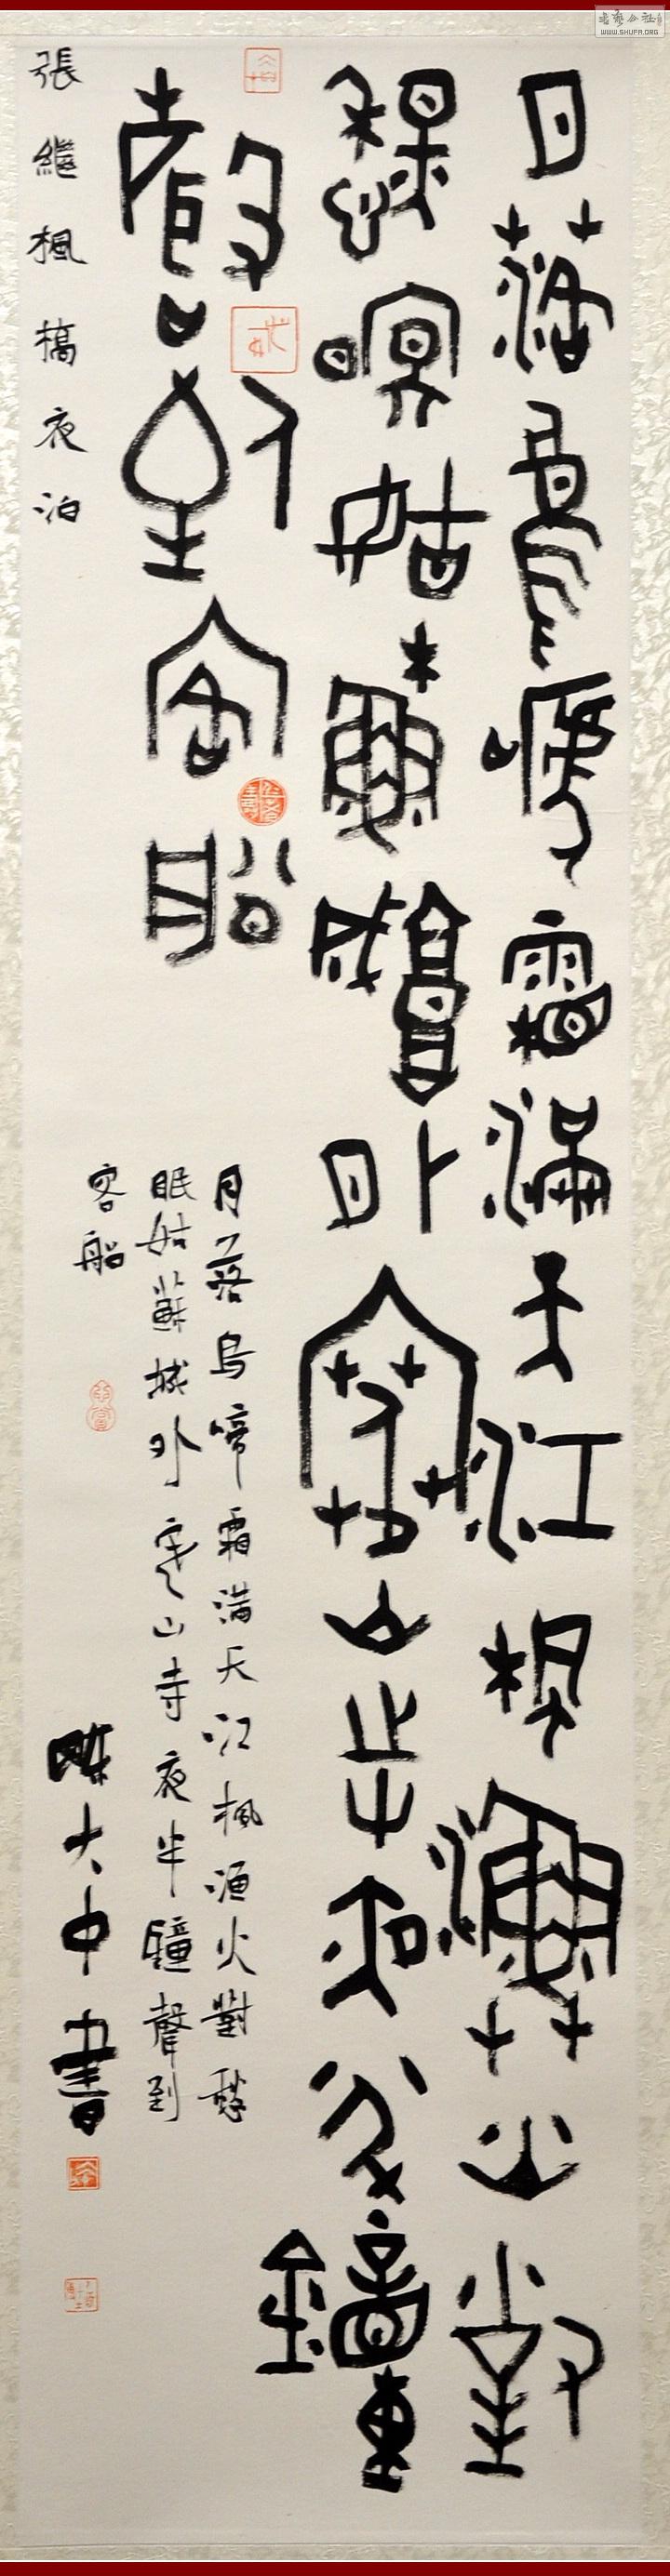 日落烏啼霜滿天江楓漁火對
愁眠姑蘇城外寒山寺夜半鐘
聲到客船
月落烏啼霜满天江楓漁火對愁
眠姑蘇城外寒山寺夜半鐘聲到
客船
陳大中書
張繼楓橋夜泊
书艺公社
WWW.SHUFA.ORG